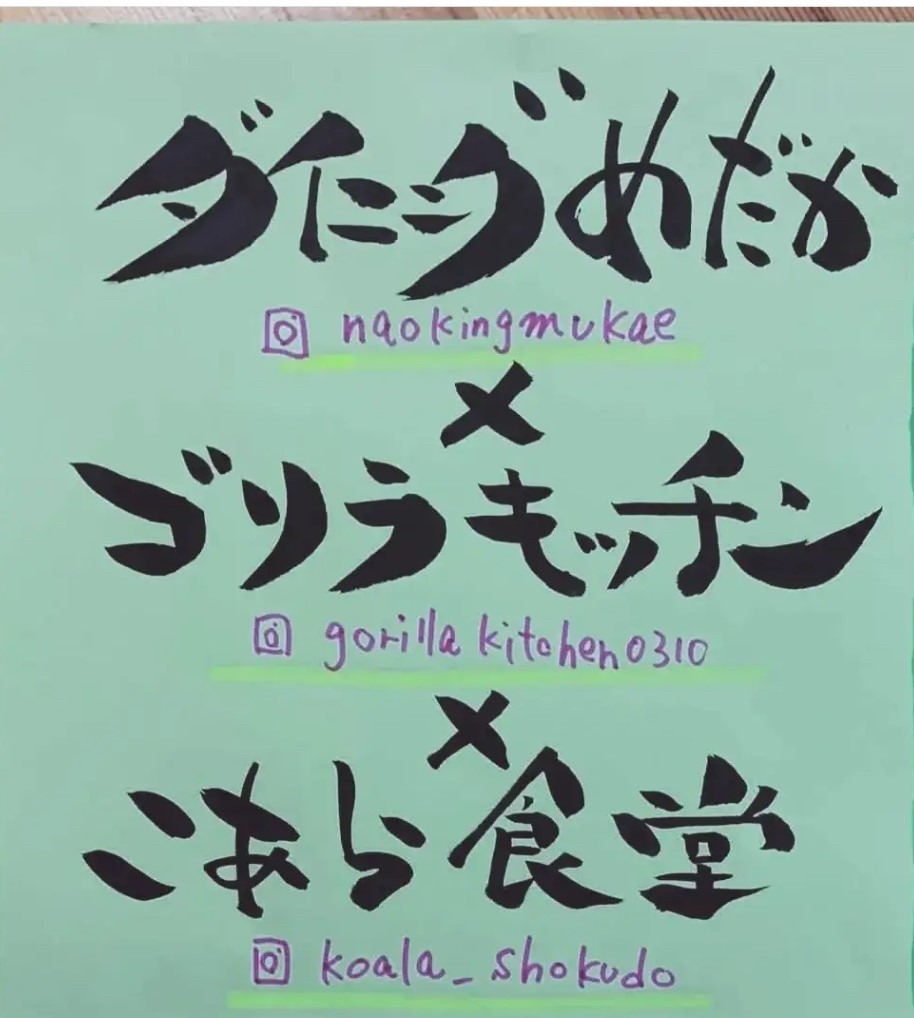 ダイニングめだか
naokingmukae
×
ゴリラキッチン
gorillakitchen0310
×
こあら食堂
koala_shokudo